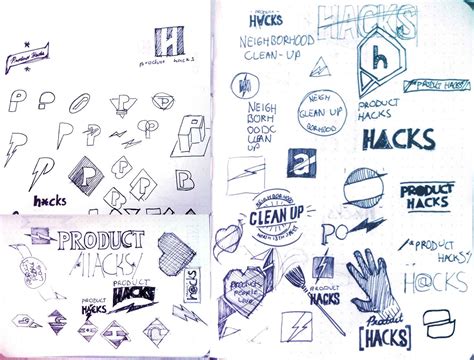 Product Hacks
H
product hacks
P
P
P
P
P
P
P
P
P
P
P
h*cks
P
P
PRODUCT
HACKS
PRODUCT
HACKS
h@cks
PRODUCT
HACKS
H
H
PRODUCT
HACKS
NEIGHBORHOOD
CLEAN-UP
NEIGH
BORH
OODC
LEAN
UP
NEIGH
CLEAN UP
BORHOOD
a
NEIGHBORHOOD
CLEAN UP
PRODUCT
PEOPLE
LOVE
PRODUCT
HACKS
HACKS
h
PRODUCT
HACKS
PRODUCT HACKS
HACKS
PRODUCT
HACKS
PRODUCT
HACKS
H@CKS
Product
[HACKS]